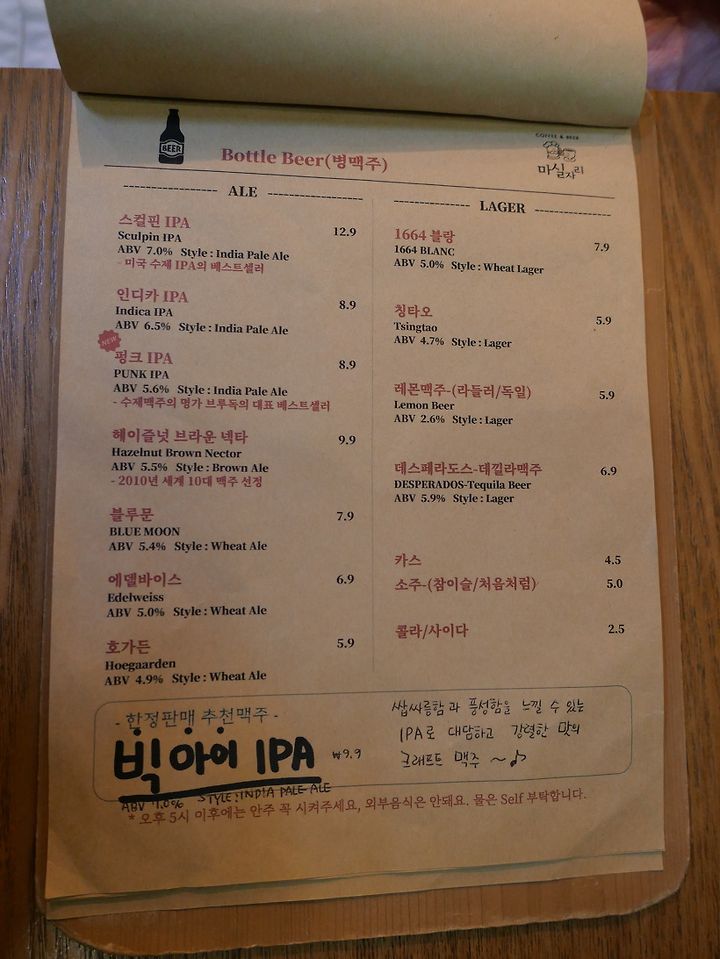 BEER
Bottle Beer(병맥주)
COFFEE & BEER
마실자리
ALE
스컬핀 IPA 12.9
Sculpin IPA
ABV 7.0% Style : India Pale Ale
- 미국 수제 IPA의 베스트셀러
인디카 IPA 8.9
Indica IPA
ABV 6.5% Style : India Pale Ale
NEW
펑크 IPA 8.9
PUNK IPA
ABV 5.6% Style : India Pale Ale
- 수제맥주의 명가 브루독의 대표 베스트셀러
헤이즐넛 브라운 넥타 9.9
Hazelnut Brown Nector
ABV 5.5% Style : Brown Ale
- 2010년 세계 10대 맥주 선정
블루문 7.9
BLUE MOON
ABV 5.4% Style : Wheat Ale
에델바이스 6.9
Edelweiss
ABV 5.0% Style : Wheat Ale
호가든 5.9
Hoegaarden
ABV 4.9% Style : Wheat Ale
LAGER
1664 블랑 7.9
1664 BLANC
ABV 5.0% Style : Wheat Lager
칭타오 5.9
Tsingtao
ABV 4.7% Style : Lager
레몬맥주-(라들러/독일) 5.9
Lemon Beer
ABV 2.6% Style : Lager
데스페라도스-데낄라맥주 6.9
DESPERADOS-Tequila Beer
ABV 5.9% Style : Lager
카스 4.5
소주-(참이슬/처음처럼) 5.0
콜라/사이다 2.5
- 한정판매 추천맥주 -
빅아이 IPA ₩9.9
ABV 7.0% STYLE : INDIA PALE ALE
쌉싸름함과 풍성함을 느낄 수 있는
IPA로 대담하고 강렬한 맛의
크래프트 맥주 ~♪
* 오후 5시 이후에는 안주 꼭 시켜주세요, 외부음식은 안돼요. 물은 Self 부탁합니다.